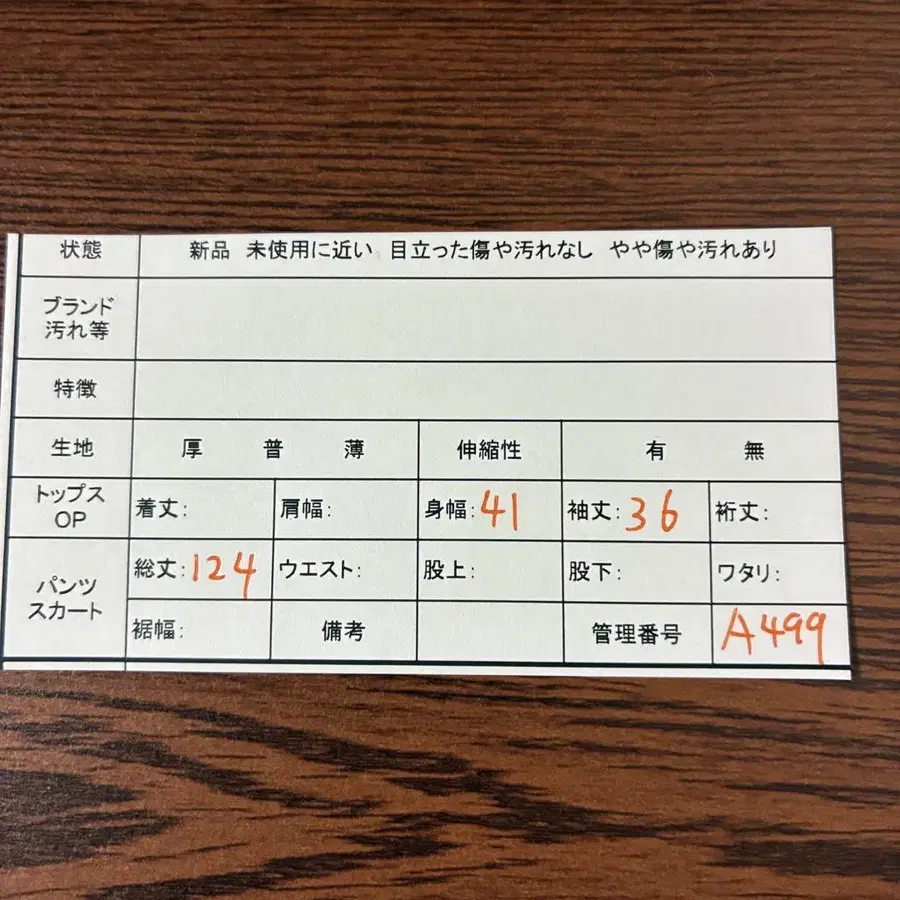 状態 新品 未使用に近い、目立った傷や汚れなし やや傷や汚れあり
ブランド
汚れ等
特徴
生地 厚 普 薄 伸縮性 有 無
トップス
OP
着丈: 肩幅: 身幅:41 袖丈:36 裄丈:
パンツ
スカート
総丈:124 ウエスト: 股上: 股下: ワタリ:
裾幅: 備考 管理番号 A499